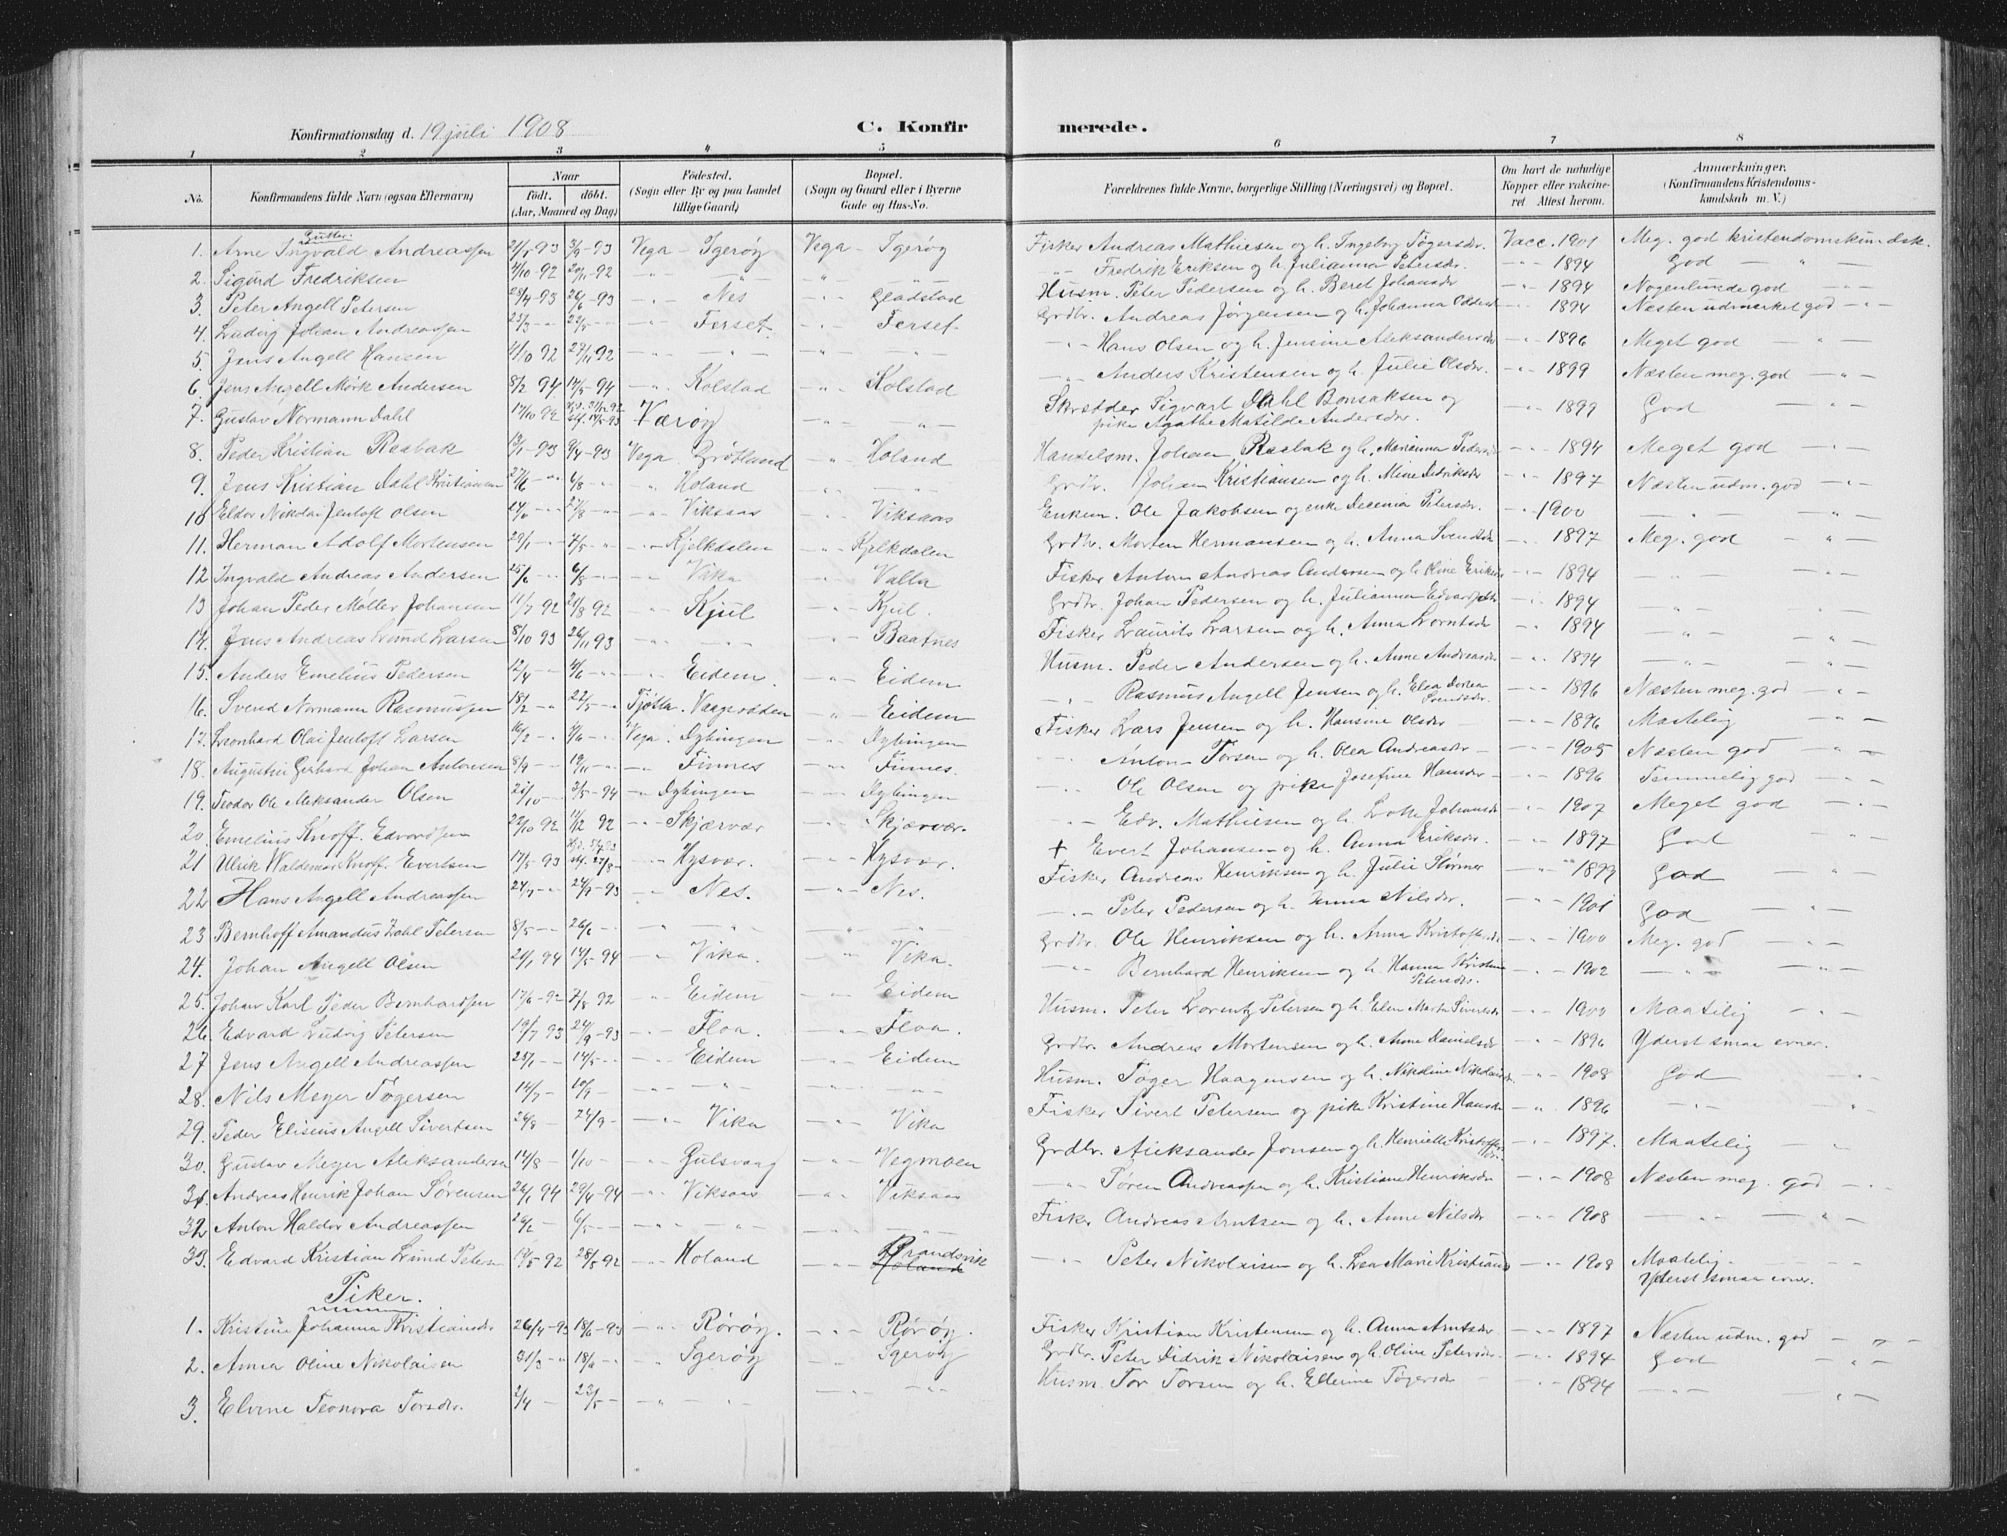 Konfirmationsdag d. 19 juli 1908 C. Konfir merede.
1 2 3 4 5 6 7 8
No. Konfirmandens fulde Navn (ogsaa Efternavn) Naar født. døbt. (Aar, Maaned og Dag) Fødested. (Sogn eller By og paa Landet tillige Gaard) Bopæl. (Sogn og Gaard eller i Byerne Gade og Hus-No. Forældrenes fulde Navne, borgerlige Stilling (Næringsvei) og Bopæl. Om havt de naturlige Kopper eller vakcineret Attest herom. Anmærkninger. (Konfirmandens Kristendomskundskab m. V.)
Gutter.
1. Arne Ingvald Andreassen 21/5 93 3/9 -93 Vega - Igerøy Vega - Igerøy Fisker Andreas Mathiesen og h. Ingeborg Tøgersdr. Vacc. 1901 Meg. god kristendomskundsk.
2. Sigurd Fredriksen 4/10 -92 20/11 -92 -"- -"- " -"- -"- Fredrik Eriksen og h. Julianna Petersdr. -"- 1894 God - " -
3. Peter Angell Petersen 28/4 -93 26/6 -93 -"- Nes -"- Gladstad Husm. Peter Pedersen og h. Beret Johansdr -"- 1894 Nogenlunde god -"-
4. Ludvig Johan Andreassen 25/3 -"- 22/5 -"- -"- Ferset -"- Ferset Grdbr. Andreas Jørgensen og h. Johanna Oddersdr -"- 1894 Næsten udmerket god -"-
5. Jens Angell Hansen 4/10 92 27/11 92 -"- -"- -"- -"- -"- Hans Olsen og h. Jensine Aleksandersdr -"- 1896 Meget god - " -
6. Jens Angell Mørk Andersen 8/2 94 14/5 -94 -"- Kolstad -"- Kolstad -"- Anders Kristensen og h. Julie Olsdr. -"- 1899 Næsten meg. god -"-
7. Gustav Normann Dahl 17/10 92 Hjd. 31/12 92 stf. 14/5 -93 Værøy -"- -"- Skrædder Sigvart Dahl Bonsaksen og pike Agathe Matilde Andersdr. -"- 1899 God -"-
8. Peder Kristian Rasbak 13/1 -93 9/4 -93 Vega Grøtlund -"- Holand Handelsm. Johan Rasbak og h. Marianna Pedersdr -"- 1894 Meget god -"-
9. Jens Kristian Dahl Kristiansen 27/6 -"- 6/8 -"- -"- Holand -"- -"- Grdbr. Johan Kristiansen og h. Mine Didriksdr -"- 1897 Næsten udm. god -"-
10 Eldor Nikolai Jentoft Olsen 27/8 -"- -"- Viksaas -"- Viksaas Enkem. Ole Jakobsen og enke Decenia Petersdr. -"- 1900 -"- -"-
11. Herman Adolf Mortensen 29/1 -"- 7/5 -"- -"- Kjelkdalen -"- Kjelkdalen Grdbr. Morten Hermansen og h. Anna Svendsdr -"- 1897 Meg. god - " -
12 Ingvald Andreas Andersen 25/6 -"- 6/8 -"- -"- Vika -"- Valla Fisker Anton Andreas Andersen og h. Oline Eriksdr -"- 1894 -"- -"-
13 Johan Peder Møller Johansen 11/7 92 21/8 92 -"- Kjul -"- Kjul. Grdbr. Johan Pedersen og h. Julianna Edvardsdtr -"- 1894 -"- -"-
14. Jens Andreas Lund Larsen 8/10 93 26/11 93 -"- -"- -"- Baatnes Fisker Laurits Larsen og h. Anna Lorntsdr -"- 1894 -"- -"-
15. Anders Emelius Pedersen 12/4 -"- 4/6 -"- -"- Eidem. -"- Eidem Husm. Peder Andersen og h. Anne Andreasdr -"- 1894 -"- -"-
16. Svend Normann Rasmussen 18/2 -"- 22/5 -"- Tjøtta. Vaagsodden -"- Eidem -"- Rasmus Angell Jensen og h. Elea Dorlea Svendsdr. -"- 1896 Næsten meg. god -"-
17. Leonhard Olai Jentoft Larsen 16/2 -"- 4/6 -"- Vega. Dybingen -"- Dybingen Fisker Lars Jensen og h. Hansine Olsdr - -"- 1896 Maatelig -"-
18. Augustin Gerhard Johan Antonsen 8/9 -"- 19/11 -"- -"- Finnes -"- Finnes. -"- Anton Torsen og h. Olea Andreasdr - -"- 1905 Næsten god -"-
19. Teodor Ole Aleksander Olsen 27/10 -"- 3/5 -94 -"- Dybingen -"- Dybingen -"- Ole Olsen og pike Josefine Hansdr - -"- 1896 Temmelig god -"-
20. Emelius Knoff. Edvardsen 22/10 92 11/12 92 -"- Skjærvær -"- Skjærvær. -"- Edv. Mathiesen og h. Lotte Johansdr -"- 1907 Meget god -"-
21 Ulrik Waldemar Knoff. Evertsen 17/5 -93 stf. 27/8 -"- Hysvær. -"- Hysvær. + Evert Johansen og h. Anna Eriksdr. -"- 1897 God -"-
22. Hans Angell Andreassen 24/7 -"- 24/9 -93 -"- Nes. -"- Nes. Fisker Andreas Henriksen og h. Julie Størmer -"- 1899 God -"-
23 Bernhoff Amandus Dahl Petersen 8/5 -"- 26/6 -"- -"- -"- " -"- -"- Peter Pedersen og h. Anna Nilsdr. -"- 1901 God -"-
24. Johan Angell Olsen 21/1 94 14/5 -94 -"- Vika. -"- Vika. Grdbr. Ole Henriksen og h. Anna Kristofersdr -"- 1900 Meg. god -"-
25. Johan Karl Peder Bernhardsen 17/6 -92 7/8 92 -"- Eidem -"- Eidem -"- Bernhard Henriksen og h. Hanna Kristine Petersdr. -"- 1902 -"- -"-
26. Edvard Ludvig Petersen 19/7 93 24/9 -93 -"- Floa. -"- Floa. Husm. Peter Lorentz Petersen og h. Elen Marta Sivertsdr -"- 1900 Maatelig -"-
27 Jens Angell Andreassen 25/1 -"- 14/5 -"- -"- Eidem -"- Eidem Grdbr. Andreas Mortensen og h. Anne Danielsdr -"- 1896 Yderst smaa evner.
28. Nils Meyer Tøgersen 14/7 -"- 10/9 -"- -"- -"- " -"- Husm. Tøger Haagensen og h. Nikoline Nikolaisdr -"- 1908 God "
29. Peder Elisius Angell Sivertsen 24/8 -"- 24/9 -"- -"- Vika -"- Vika Fisker Sivert Petersen og pike Kristine Hansdr -"- 1896 -"- "
30. Gustav Meyer Aleksandersen 14/8 -"- 1/10 -"- -"- Gulsvaag -"- Vegmoen Grdbr. Aleksander Jonsen og h. Henrielle Kristoffersdr. -"- 1897. Maatelig "
31. Andreas Henrik Johan Sørensen 26/1 94 29/4 -94 -"- Viksaas " Viksaas -"- Søren Andreassen og h. Kristiane Henriksdr -"- 1908 Næsten meg. god -"-
32 Anton Haldor Andreassen 26/2 -"- 6/5 -"- -"- -"- " -"- Fisker Andreas Arntsen og h. Anne Nilsdr -"- 1908 -"- -"-
33. Edvard Kristian Lund Petersen 19/5 92 28/8 92 -"- Holand -"- Brandsvik Holand -"- Peter Nikolaisen og h. Lea Marie Kristiansdr -"- 1908 Maatelig. Yderst smaa evner.
Piker.
1. Kristine Johanna Kristiansdr 26/4 -93 18/6 -93 -"- Rørøy. -"- Rørøy. Fisker Kristian Kristensen og h. Anna Arntsdr -"- 1897 Næsten udm. god -"-
2. Anna Oline Nikolaisen 31/3 -"- 18/6 -"- -"- Igerøy Igerøy Grdbr. Peter Didrik Nikolaisen og h. Oline Petersdr. -"- 1894 God -"-
3. Elvine Teonora Torsdr. 2/4 - 23/5 - -"- -"- -"- -"- Husm. Tor Torsen og h. Ellerine Tøgersdr -"- 1894 -"- -"-